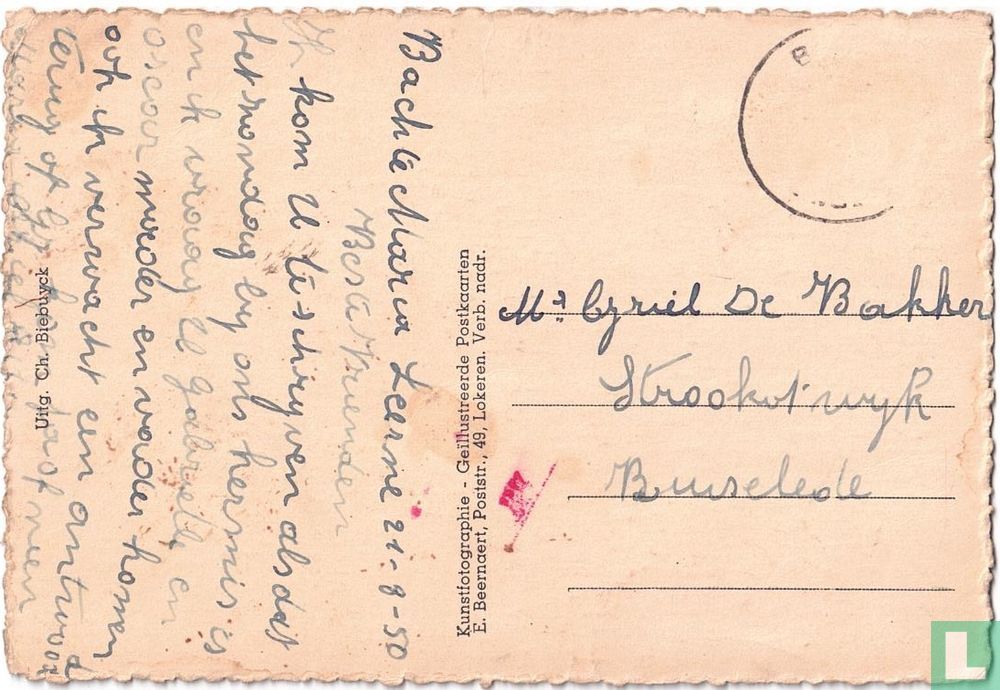 Bachte Maria Leerne 21-8-50
Beste Vrienden
Ik kom U te schryven alsdat
het zondag by ons kermis is
en ik vraag of gabriella en
oscar moeder en vader komen
ook ik verwacht een antwoord
of gy kom ja of neen
Uitg. Ch. Biebuyck
Kunstfotographie - Geïllustreerde Postkaarten
E. Beernaert, Poststr., 49, Lokeren. Verb. nadr.
Mr Cyriel De Bakker
Strookotwyk
Ruiselede
L